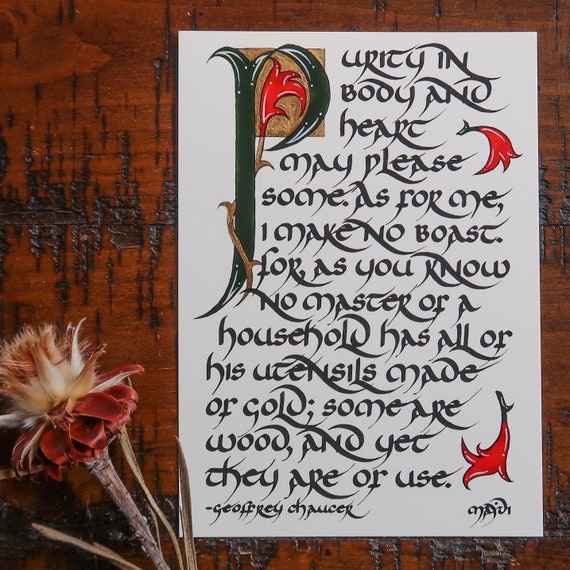 Purity in
body and
heart
may please
some. As for me,
I make no boast.
For, as you know
no master of a
household has all of
his utensils made
of gold; some are
wood, and yet
they are of use.
~Geoffrey Chaucer